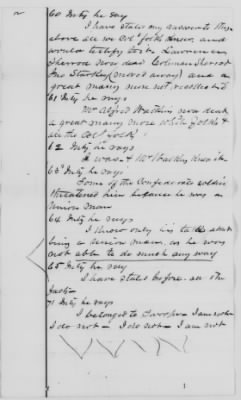 2
60 Inty he says
I have stated my answer to this
above all we Col'd folks knew, and
would testify to it. Lawrence
Sherrod now dead Coleman Sherrod
(moved away) and a
great many more not recollected
61 Inty he says
Mr Alfred Watkins now dead
a great many more white folks &
all the Col'd folks
62 Inty he says
I was & Mr knew it
63" Inty he says
Some of the Confederate soldiers
threatened him because he was a
Union Man
64 Inty he says
I know only his talk about
being a Union man, as he was
not able to do much any way
65 Inty he says
I have stated before all the
facts
71 Inty he says
I belonged to I am not
I do not — I do not — I am not